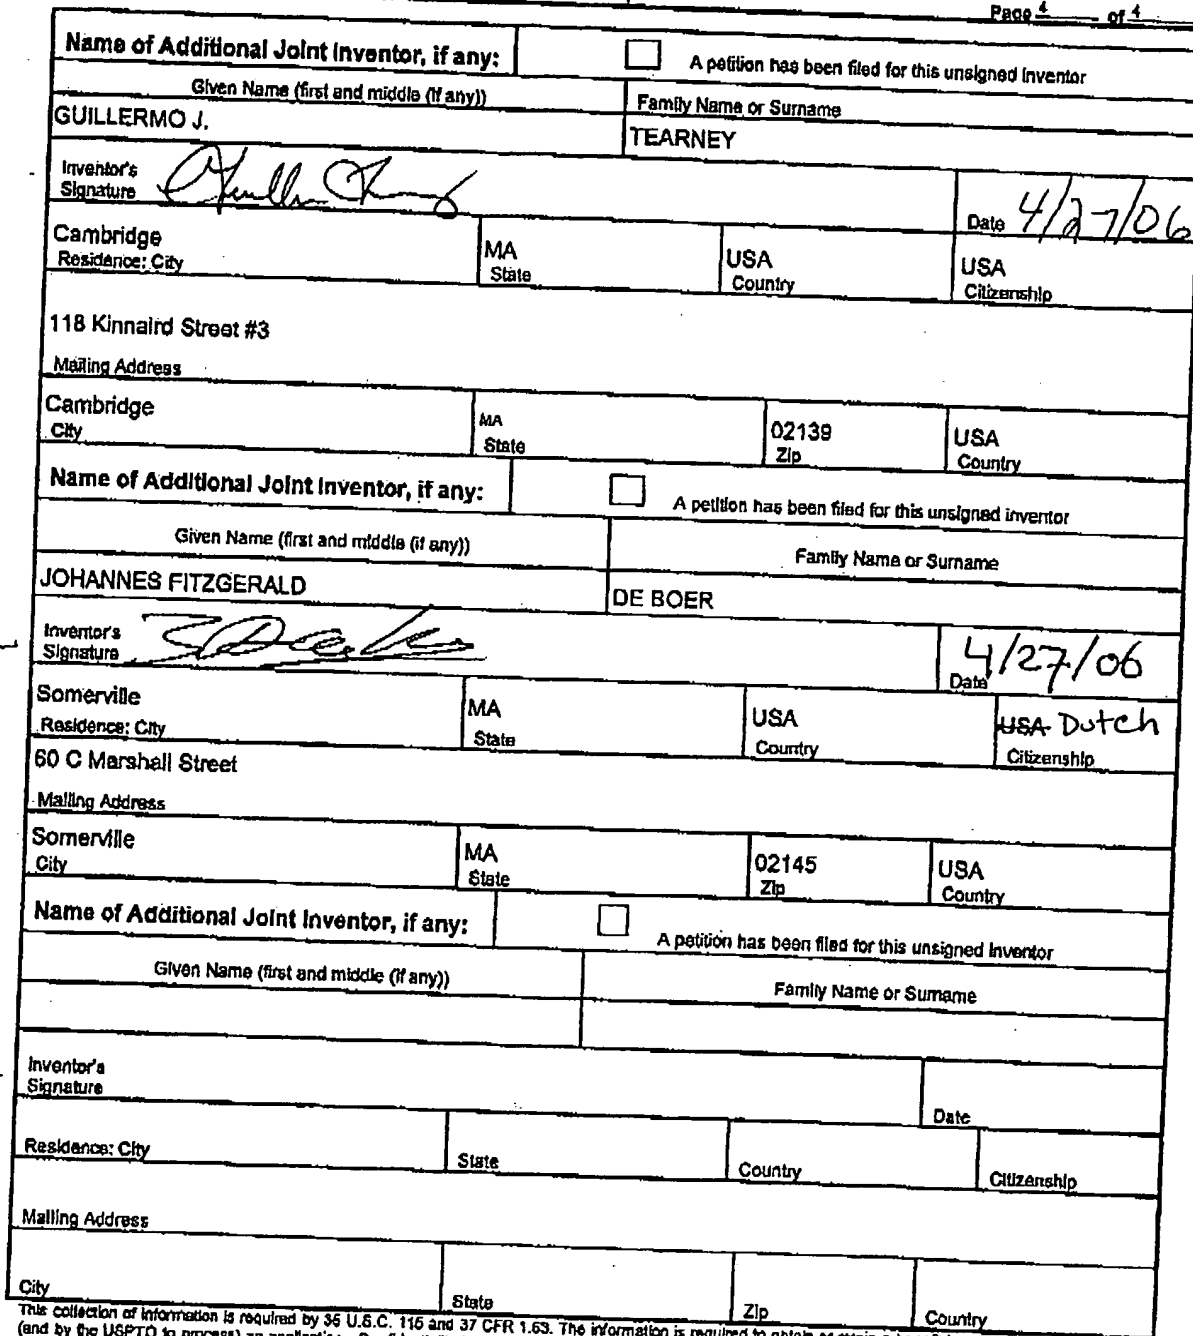 Page 4 of 4
Name of Additional Joint Inventor, if any: A petition has been filed for this unsigned inventor
Given Name (first and middle (if any)) Family Name or Surname
GUILLERMO J. TEARNEY
Inventor's
Signature Date 4/27/06
Cambridge MA USA USA
Residence: City State Country Citizenship
118 Kinnaird Street #3
Mailing Address
Cambridge MA 02139 USA
City State Zip Country
Name of Additional Joint Inventor, if any: A petition has been filed for this unsigned inventor
Given Name (first and middle (if any)) Family Name or Surname
JOHANNES FITZGERALD DE BOER
Inventor's
Signature Date 4/27/06
Somerville MA USA USA Dutch
Residence: City State Country Citizenship
60 C Marshall Street
Mailing Address
Somerville MA 02145 USA
City State Zip Country
Name of Additional Joint Inventor, if any: A petition has been filed for this unsigned inventor
Given Name (first and middle (if any)) Family Name or Surname
Inventor's
Signature Date
Residence: City State Country Citizenship
Mailing Address
City State Zip Country
This collection of information is required by 35 U.S.C. 115 and 37 CFR 1.63. The information is required to obtain or
(and by the USPTO to process) an application.